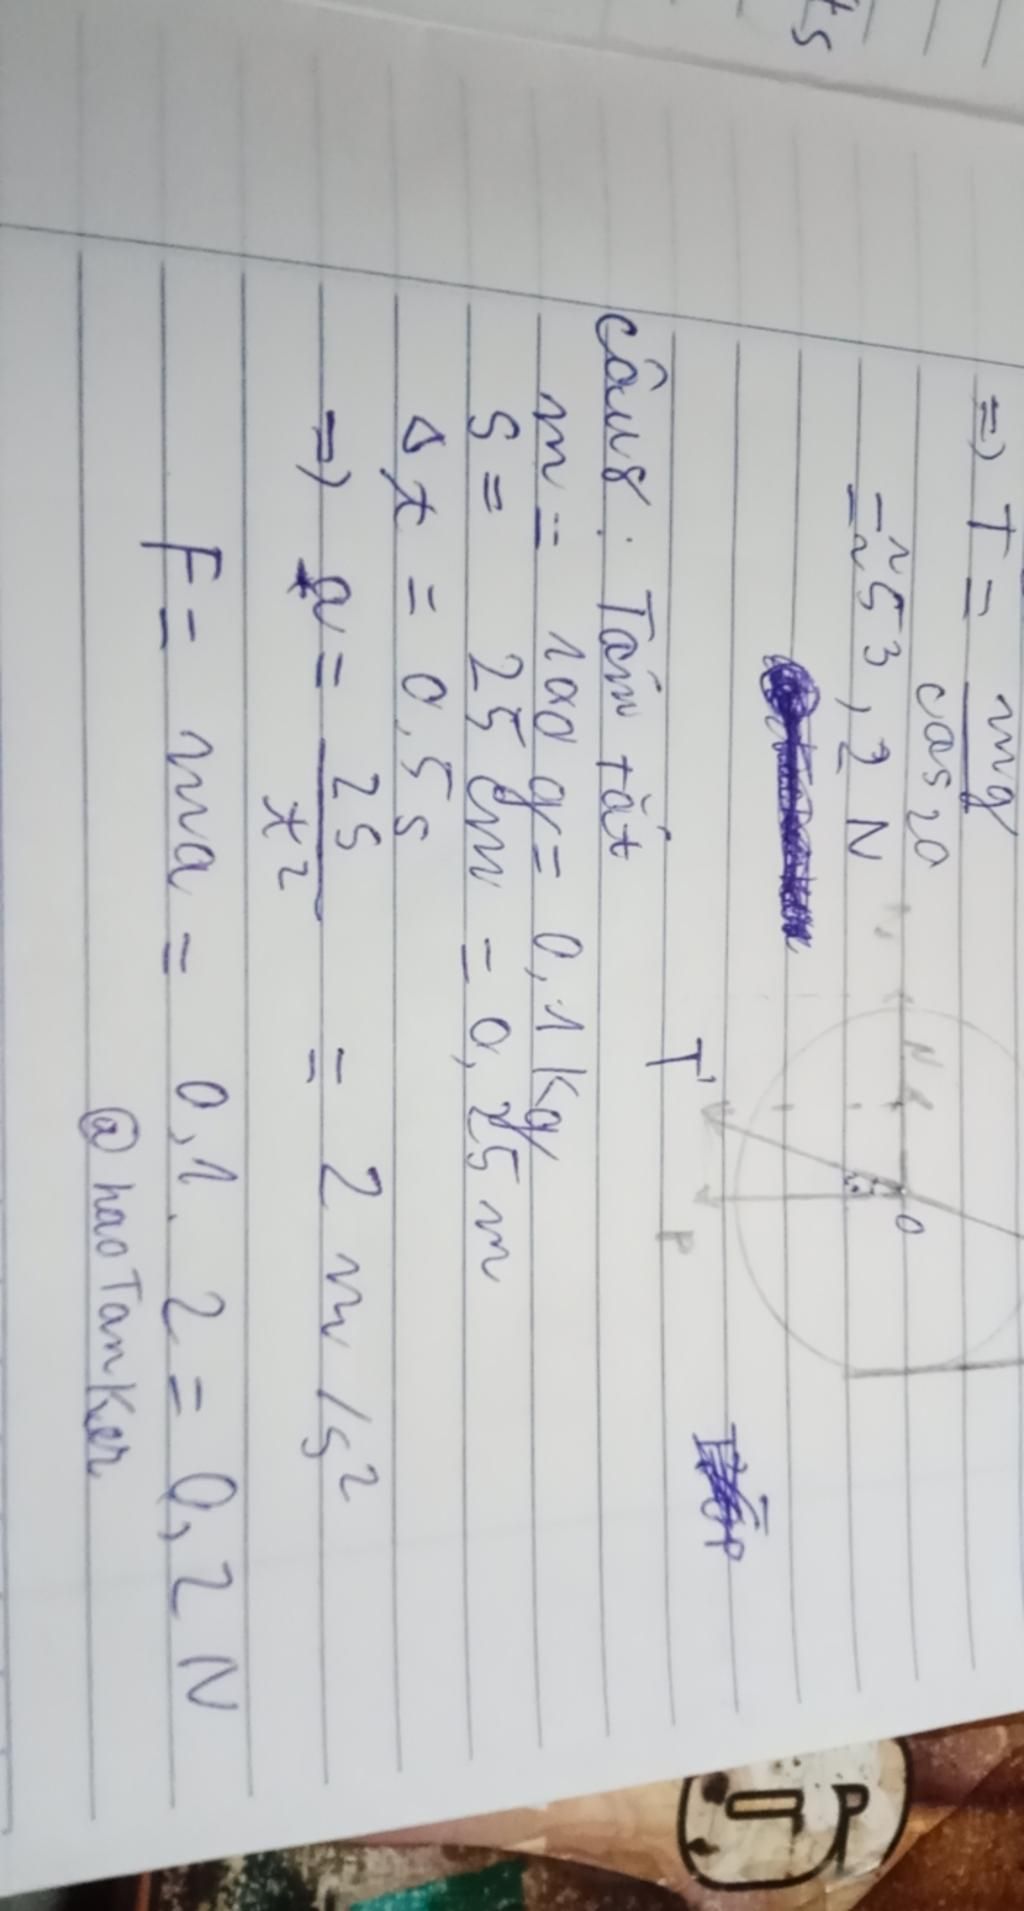 ts
=) T = mg
cos 20
≈ 53,2 N
N
O
T'
P
Câu 8: Tóm tắt
m = 100 g = 0,1 kg
s = 25 cm = 0,25 m
Δt = 0,5 s
=) a = 2s / t² = 2 m/s²
F = ma = 0,1. 2 = 0,2 N
@haoTanKer